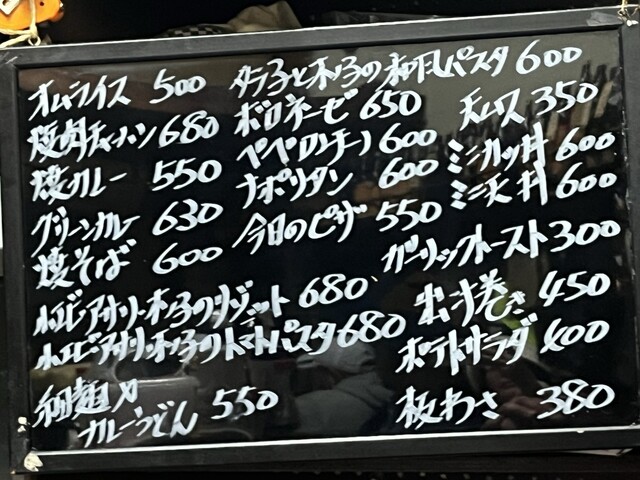 オムライス 500
焼肉チャーハン 680
焼カレー 550
グリーンカレー 630
焼そば 600
小エビアサリキノ子のリゾット 680
小エビアサリキノ子のトマトパスタ 680
細麺
カレーうどん 550
タラ子とキノ子の和風パスタ 600
ボロネーゼ 650
ペペロンチーノ 600
ナポリタン 600
今日のピザ 550
天ムス 350
ミニカツ丼 600
ミニ天丼 600
ガーリックトースト 300
出し汁巻き 450
ポテトサラダ 400
板わさ 380